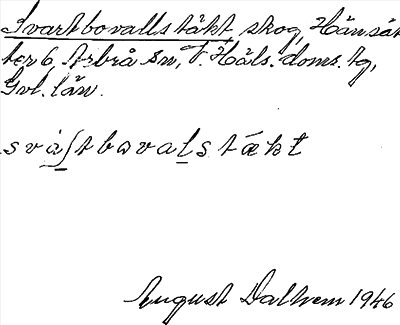 Svartbovallstäkt, skog, Hänsät
ter 6, Arbrå sn, V. Häls. doms. tg,
Gvl. län.
svàʃtbωvalstækt
August Dalhem 1946